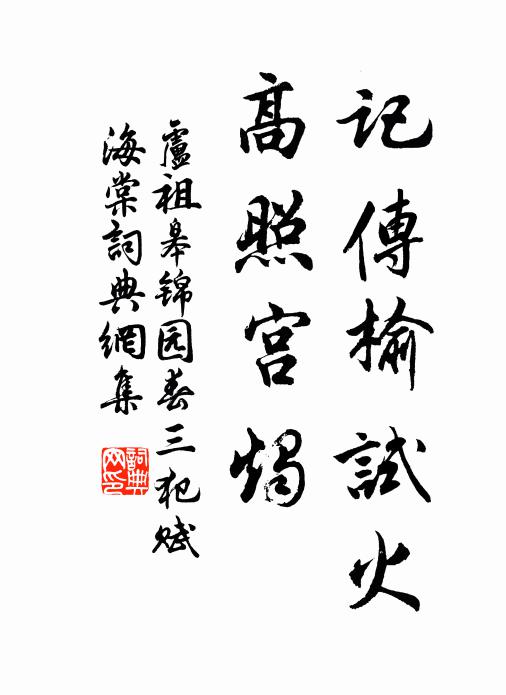 記傳榆試火
髙照宫燭
盧祖皋锦园春三犯赋
海棠詞典網集
詞典网印